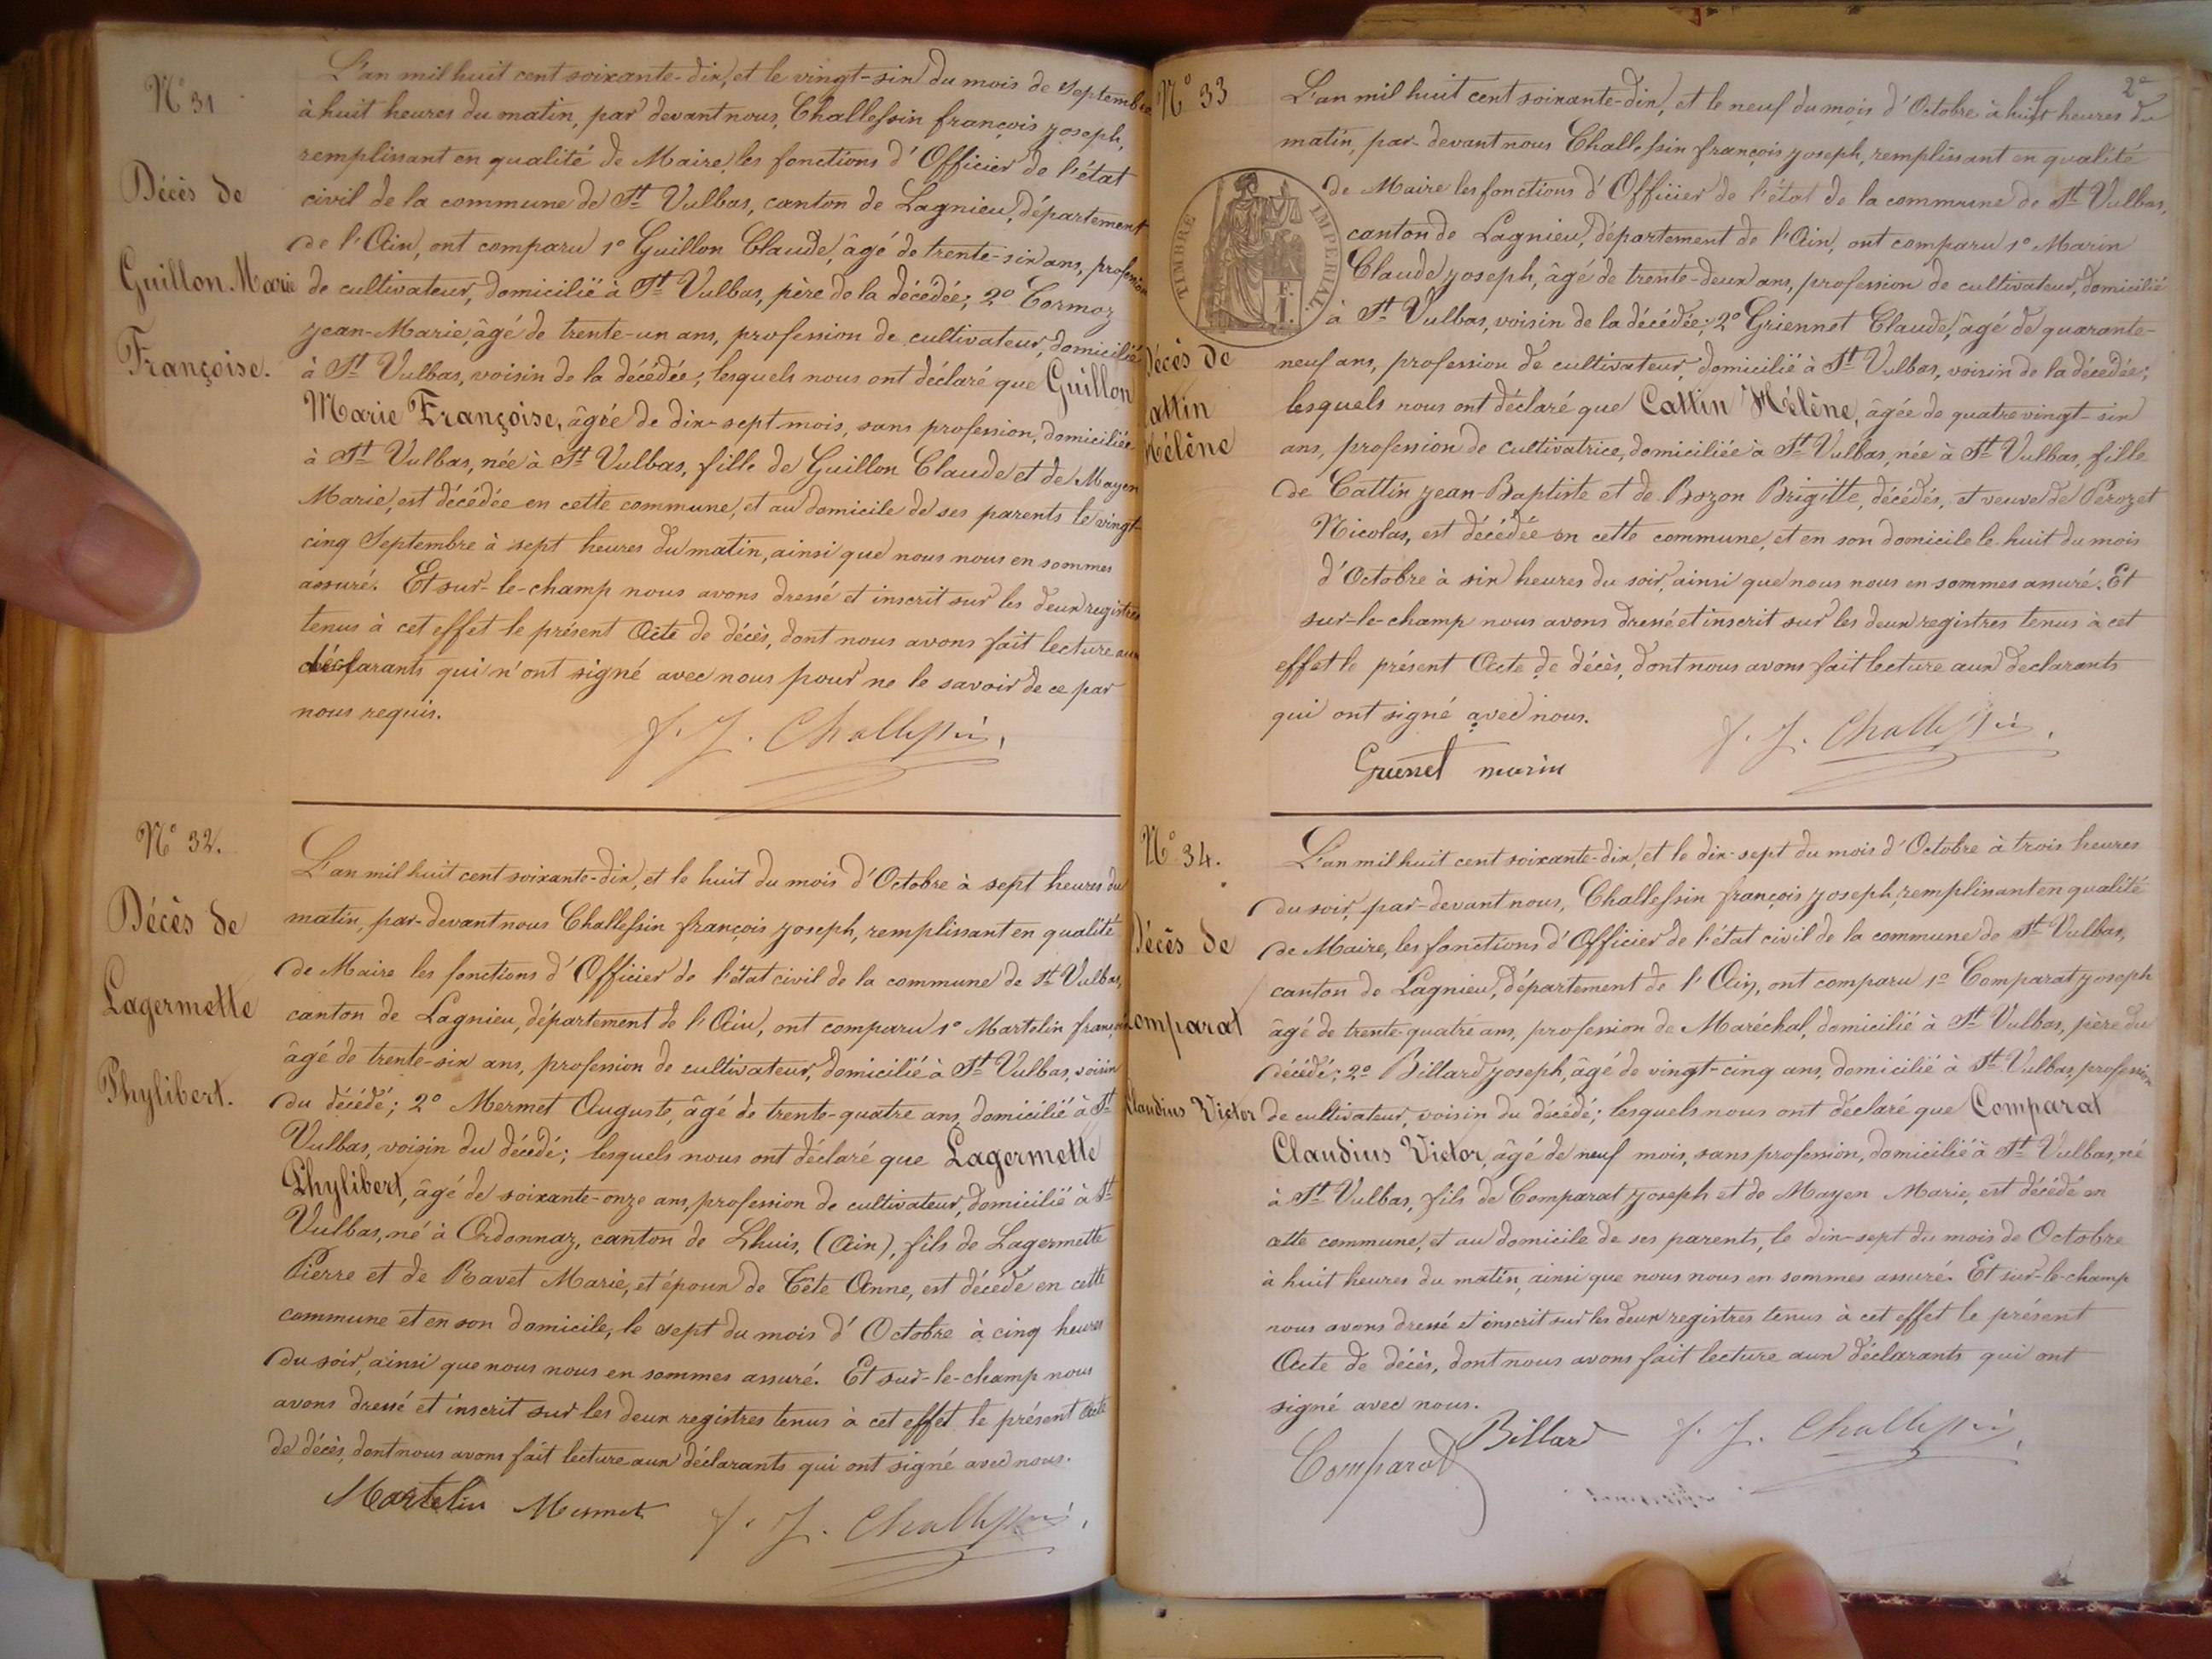 N° 31
Décès de
Guillon Marie
Françoise.
L'an mil huit cent soixante-dix, et le vingt-six du mois de Septembre
à huit heures du matin, par devant nous, Challessin françois joseph,
remplissant en qualité de Maire, les fonctions d'Officier de l'état
civil de la commune de St Vulbas, canton de Lagnieu, département
de l'Ain, ont comparu 1° Guillon Claude, âgé de trente-six ans, profession
de cultivateur, domicilié à St Vulbas, père de la décédée; 2° Cormoz
jean-Marie, âgé de trente-un ans, profession de cultivateur, domicilié
à St Vulbas, voisin de la décédée; lesquels nous ont déclaré que Guillon
Marie Françoise, âgée de dix-sept mois, sans profession, domiciliée
à St Vulbas, née à St Vulbas, fille de Guillon Claude et de Mayen
Marie, est décédée en cette commune, et au domicile de ses parents le vingt-
cinq Septembre à sept heures du matin, ainsi que nous nous en sommes
assuré. Et sur-le-champ nous avons dressé et inscrit sur les deux registres
tenus à cet effet le présent Acte de décès, dont nous avons fait lecture aux
déclarants qui n'ont signé avec nous pour ne le savoir de ce par
nous requis.
f. J. Challessin,
N° 32.
Décès de
Lagermette
Phylibert.
L'an mil huit cent soixante-dix, et le huit du mois d'Octobre à sept heures du
matin, par-devant nous Challessin françois joseph, remplissant en qualité
de Maire les fonctions d'Officier de l'état civil de la commune de St Vulbas,
canton de Lagnieu, département de l'Ain, ont comparu 1° Martelin françois
âgé de trente-six ans, profession de cultivateur, domicilié à St Vulbas, voisin
du décédé; 2° Mermet Auguste, âgé de trente-quatre ans, domicilié à St
Vulbas, voisin du décédé; lesquels nous ont déclaré que Lagermette
Phylibert, âgé de soixante-onze ans, profession de cultivateur, domicilié à St
Vulbas, né à Ordonnaz, canton de Lhuis, (Ain), fils de Lagermette
Pierre et de Ravet Marie, et époux de Tête Anne, est décédé en cette
commune et en son domicile, le sept du mois d'Octobre à cinq heures
du soir, ainsi que nous nous en sommes assuré. Et sur-le-champ nous
avons dressé et inscrit sur les deux registres tenus à cet effet le présent Acte
de décès, dont nous avons fait lecture aux déclarants qui ont signé avec nous.
Martelin Mermet f. J. Challessin,
2e
N° 33
TIMBRE IMPÉRIAL.
Décès de
Cattin
Hélène
L'an mil huit cent soixante-dix, et le neuf du mois d'Octobre à huit heures du
matin, par-devant nous Challessin françois joseph, remplissant en qualité
de Maire les fonctions d'Officier de l'état de la commune de St Vulbas,
canton de Lagnieu, département de l'Ain, ont comparu 1° Marin
Claude joseph, âgé de trente-deux ans, profession de cultivateur, domicilié
à St Vulbas, voisin de la décédée; 2° Griennet Claude, âgé de quarante-
neuf ans, profession de cultivateur, domicilié à St Vulbas, voisin de la décédée;
lesquels nous ont déclaré que Cattin Hélène, âgée de quatre vingt-six
ans, profession de cultivatrice, domiciliée à St Vulbas, née à St Vulbas, fille
de Cattin jean-Baptiste et de Bozon Brigitte, décédés, et veuve de Pérozet
Nicolas, est décédée en cette commune, et en son domicile le huit du mois
d'Octobre à six heures du soir, ainsi que nous nous en sommes assuré. Et
sur-le-champ nous avons dressé et inscrit sur les deux registres tenus à cet
effet le présent Acte de décès, dont nous avons fait lecture aux declarants
qui ont signé avec nous.
f. J. Challessin,
marin
N° 34.
Décès de
Comparat
Claudius Victor
L'an mil huit cent soixante-dix, et le dix-sept du mois d'Octobre à trois heures
du soir, par-devant nous, Challessin françois joseph, remplissant en qualité
de Maire, les fonctions d'Officier de l'état civil de la commune de St Vulbas,
canton de Lagnieu, département de l'Ain, ont comparu 1° Comparat joseph
âgé de trente-quatre ans, profession de Maréchal, domicilié à St Vulbas, père du
décédé; 2° Billard joseph, âgé de vingt-cinq ans, domicilié à St Vulbas, profession
de cultivateur, voisin du décédé; lesquels nous ont déclaré que Comparat
Claudius Victor, âgé de neuf mois, sans profession, domicilié à St Vulbas, né
à St Vulbas, fils de Comparat joseph et de Mayen Marie, est décédé en
cette commune, et au domicile de ses parents, le dix-sept du mois de Octobre
à huit heures du matin, ainsi que nous nous en sommes assuré. Et sur-le-champ
nous avons dressé et inscrit sur les deux registres tenus à cet effet le présent
Acte de décès, dont nous avons fait lecture aux déclarants qui ont
signé avec nous.
Comparat Billard f. J. Challessin,